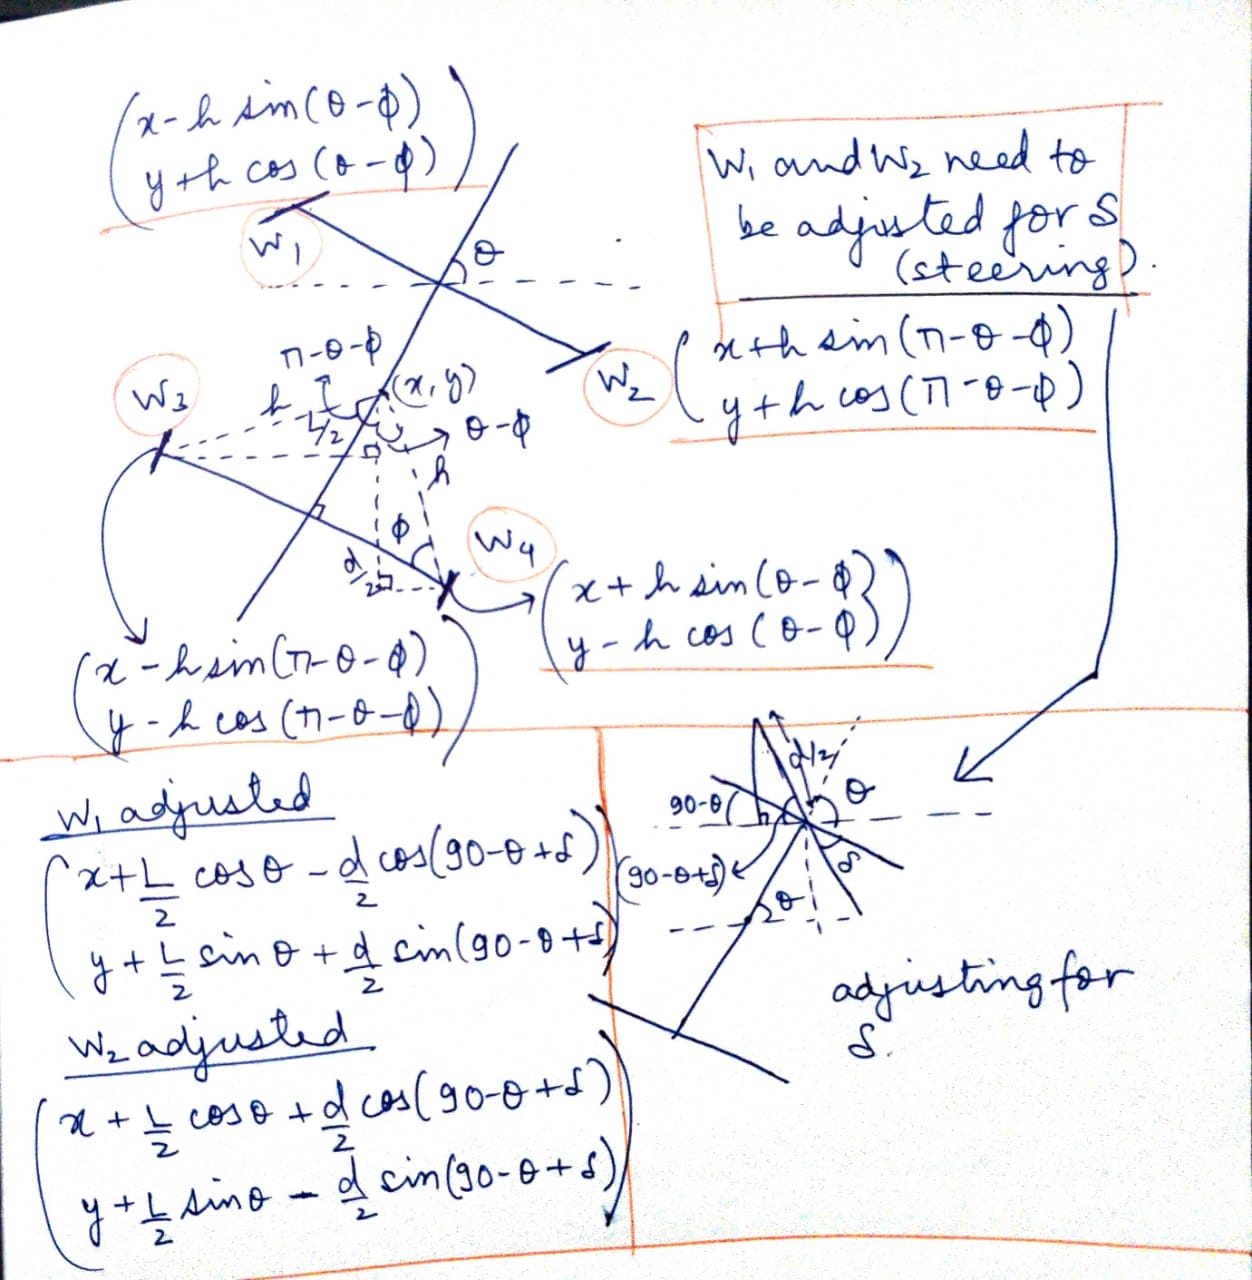 (x - h sin(θ-ϕ)
y + h cos(θ-ϕ))
W₁
θ
W₁ and W₂ need to
be adjusted for δ
(steering).
π-θ-ϕ
(x, y)
W₂
(x+h sin(π-θ-ϕ)
y+h cos(π-θ-ϕ))
W₃
h
L/2
θ-ϕ
h
ϕ
d/2
W₄
(x + h sin(θ-ϕ)
y - h cos(θ-ϕ))
(x - h sin(π-θ-ϕ)
y - h cos(π-θ-ϕ))
W₁ adjusted
(x+L/2 cosθ - d/2 cos(90-θ+δ)
y+L/2 sinθ + d/2 sin(90-θ+δ))
W₂ adjusted
(x + L/2 cosθ + d/2 cos(90-θ+δ)
y + L/2 sinθ - d/2 sin(90-θ+δ))
d/2
90-θ
θ
(90-θ+δ)
δ
θ
adjusting for
δ.